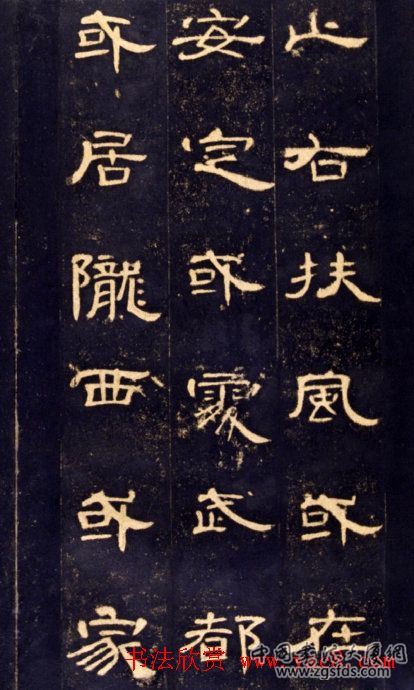 止右扶風或在
安定或處武都
或居隴西或家
书法欣赏
www.zgsfds.com